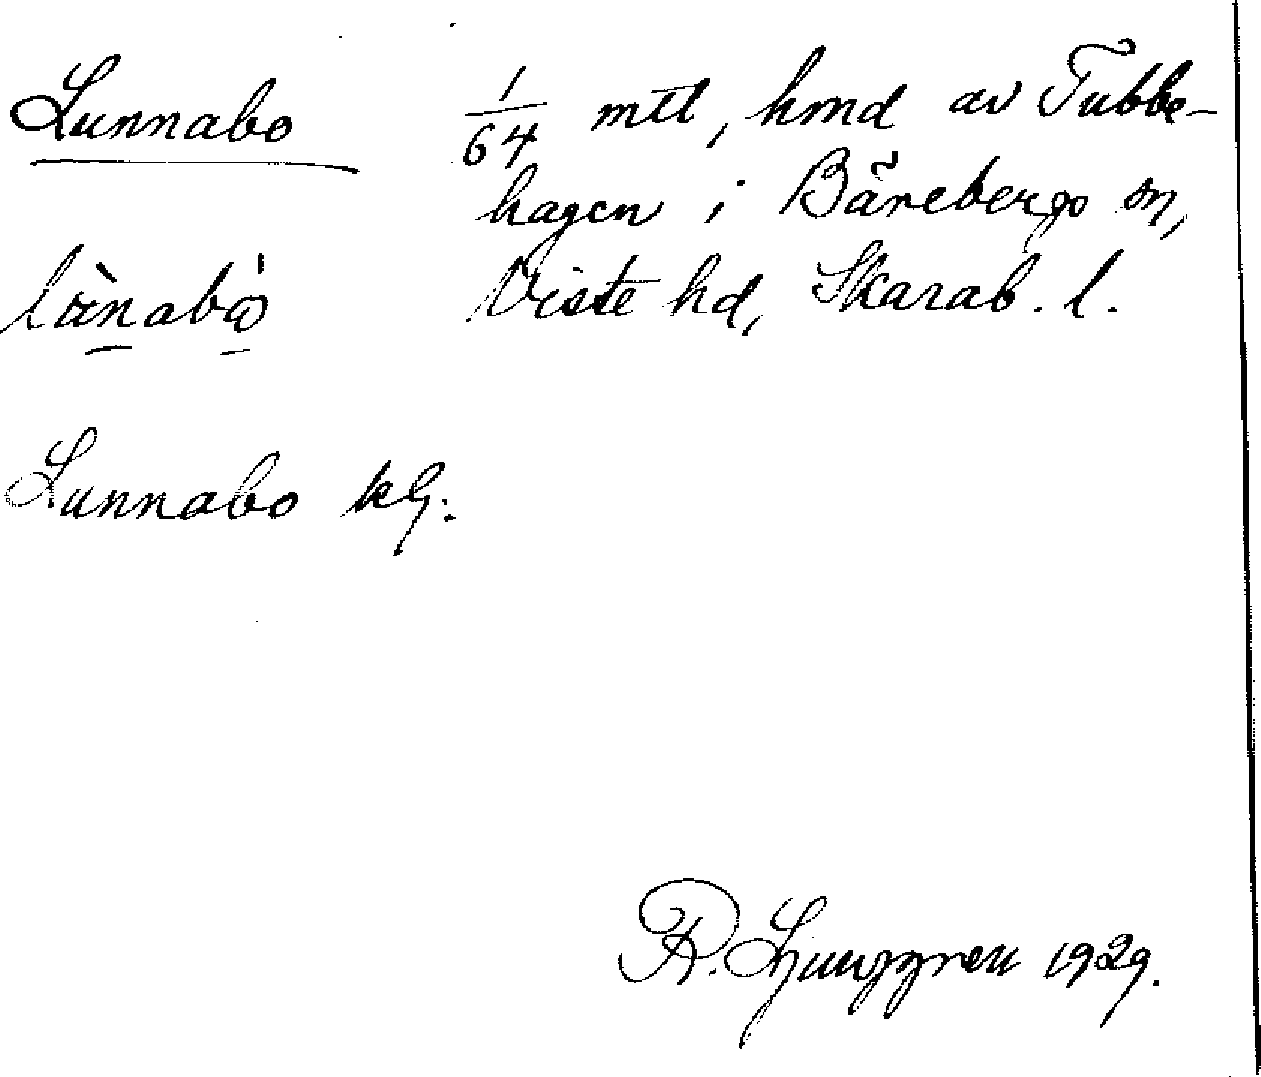 Lunnabo 1/64 mtl, hmd av Tubbe-
hagen i Bärebergs sn,
Viste hd, Skarab. l.
Lunnabo kG.
R. Ljunggren 1929.